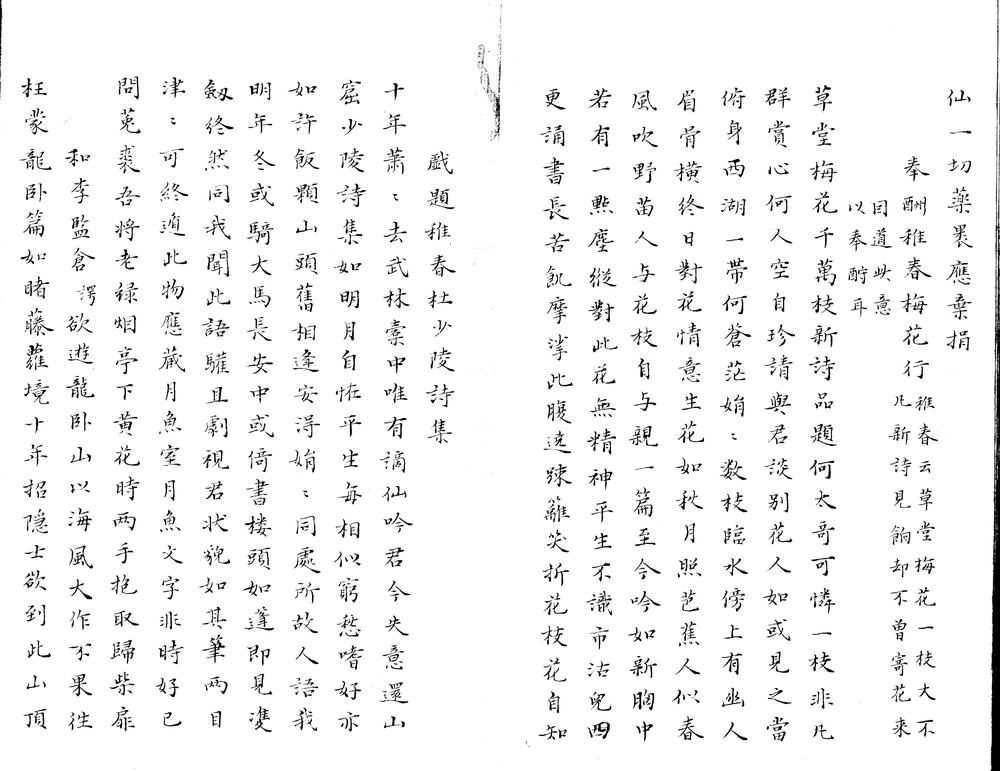 仙一切藥裹應棄捐
奉酬稚春梅花行稚春云草堂梅花一枝大不
凡新詩見餉却不曾寄花来
因道此意
以奉酧耳
草堂梅花千萬枝新詩品題何太哥可憐一枝非凡
群賞心何人空自珍請與君談別花人如或見之當
俯身西湖一帶何蒼茫娟〻数枝臨水傍上有幽人
眉骨橫終日對花情意生花如秋月照芭蕉人似春
風吹野苗人与花枝自与親一篇至今吟如新胸中
若有一㸃塵縱對此花無精神平生不識市沽兒四
更誦書長苦飢摩挲此腹遶踈籬笑折花枝花自知
戯題稚春杜少陵詩集
十年蕭〻去武林槖中唯有謫仙吟君今失意還山
窟少陵詩集如明月自恠平生每相似窮愁嗜好亦
如許飯顆山頭舊相逢安淂娟〻同處所故人語我
明年冬或騎大馬長安中或倚書楼頭如蓬即見㕠
劔終然同我聞此語驩且劇視君状貌如其筆两目
津〻可終遁此物應蔵月魚室月魚文字非時好已
問莵裘吾將老緑烟亭下黄花時两手抱取歸柴扉
和李監倉澪欲遊龍卧山以海風大作不果往
枉蒙龍卧篇如睹藤蘿境十年招隠士欲到此山頂